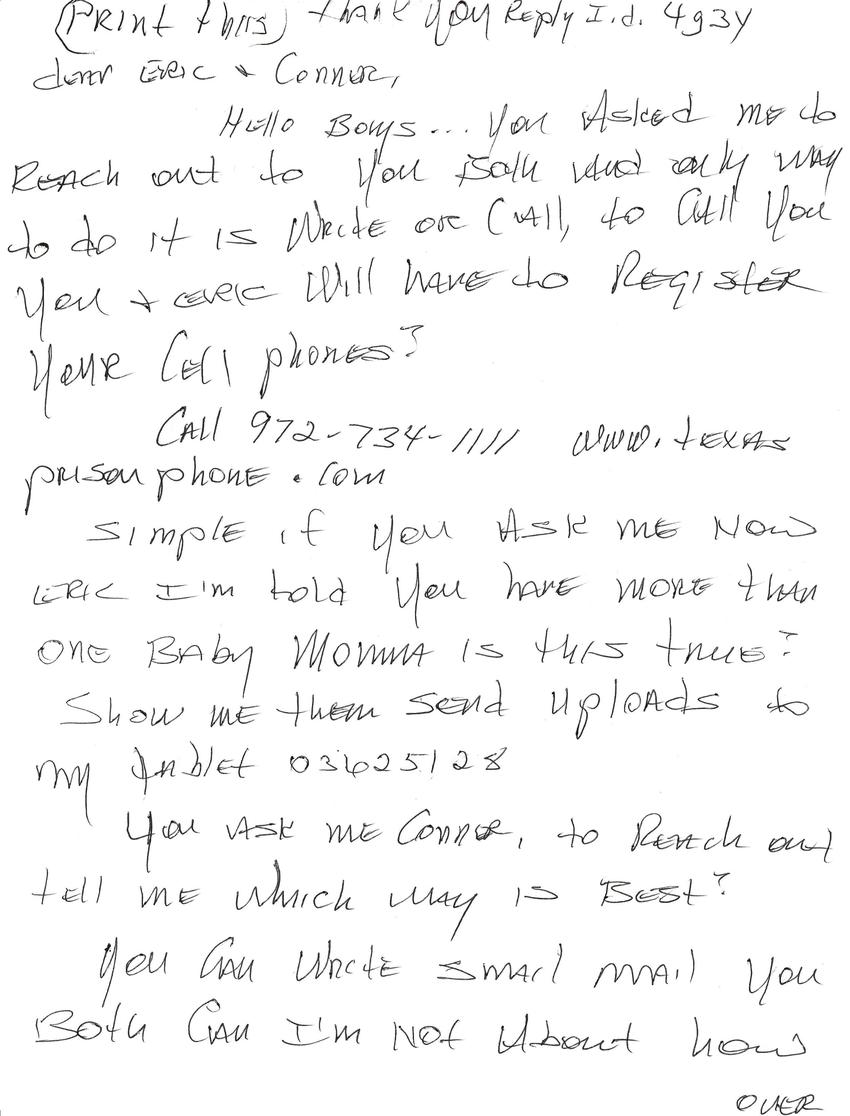 (Print this) thank you Reply I.d. 4g3y
dear Eric & Conner,
Hello Boys... You Asked me to
Reach out to you Both and only way
to do it is Write or Call, to Call You
You & Eric Will have to Register
Your Cell phones?
Call 972-734-1111 www.texas
prisonphone.com
Simple if you Ask me Now
Eric I'm told You have more than
one Baby Momma is this true?
Show me them send uploads to
my tablet 03625128
You Ask me Conner, to Reach out
tell me which way is Best?
You Can Write smail mail You
Both Can I'm Not About how
over